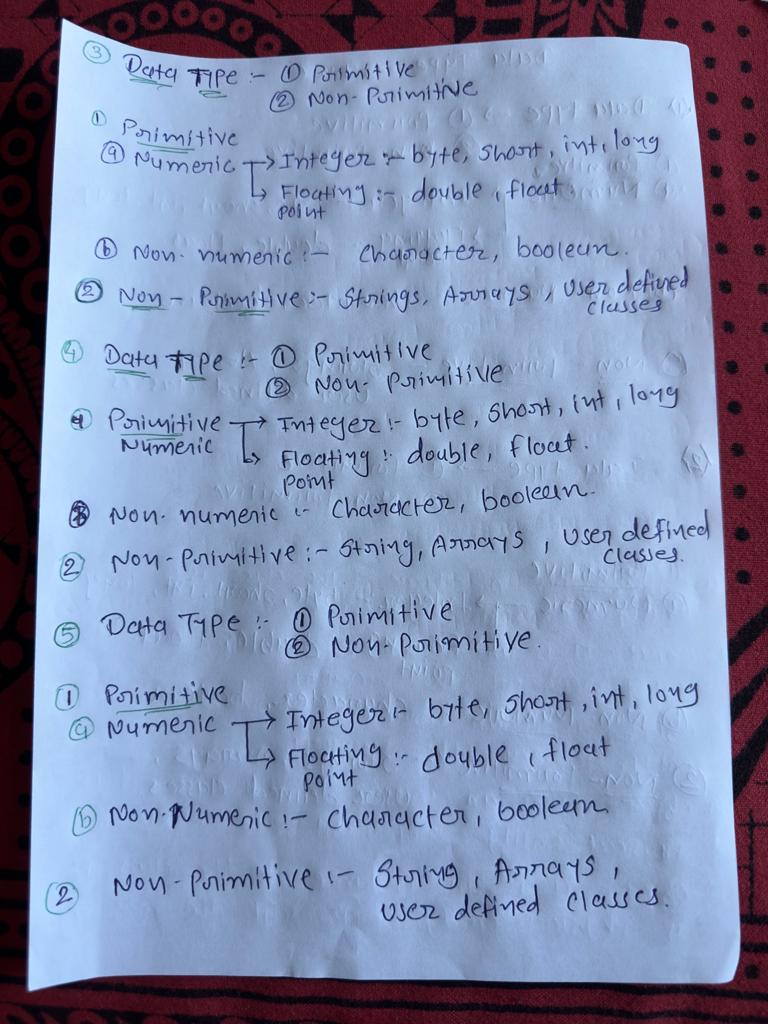 ③ Data Type :- ① Primitive
② Non-Primitive
① Primitive
ⓐ Numeric → Integer :- byte, short, int, long
↳ Floating :- double, float
point
ⓑ Non-numeric :- character, boolean.
② Non-Primitive :- Strings, Arrays, User defined
classes
④ Data Type :- ① Primitive
② Non-Primitive
Primitive → Integer :- byte, short, int, long
Numeric ↳ Floating :- double, float.
point
Non-numeric :- Character, boolean.
② Non-Primitive :- String, Arrays, User defined
classes.
⑤ Data Type :- ① Primitive
② Non-Primitive.
① Primitive
ⓐ Numeric → Integer :- byte, short, int, long
↳ Floating :- double, float
point
ⓑ Non-Numeric :- Character, boolean
② Non-Primitive :- String, Arrays,
user defined classes.